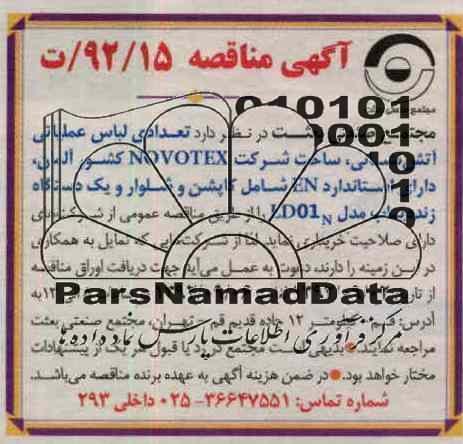 آگهی مناقصه ۹۲/۱۵/ت
مجتمع صنعتی بعثت در نظر دارد تعدادی لباس عملیاتی
آتش‌نشانی، ساخت شرکت NOVOTEX کشور آلمان،
دارای استاندارد EN شامل کاپشن و شلوار و یک دستگاه
زنده‌یاب مدل LD01N را از طریق مناقصه عمومی از شرکت‌های
دارای صلاحیت خریداری نماید. لذا از شرکت‌هایی که تمایل به همکاری
در این زمینه را دارند، دعوت به عمل می‌آید جهت دریافت اوراق مناقصه
از تاریخ
ParsNamadData
آدرس: قم کیلومتر ۱۲ جاده قدیم قم - تهران، مجتمع صنعتی بعثت
مرکز فرآوری اطلاعات پارس نماد داده ها
مراجعه نمایند. بدیهی است مجتمع در رد یا قبول هر یک از پیشنهادات
مختار خواهد بود. در ضمن هزینه آگهی به عهده برنده مناقصه می‌باشد.
شماره تماس: ۳۶۶۴۷۵۵۱-۰۲۵ داخلی ۲۹۳